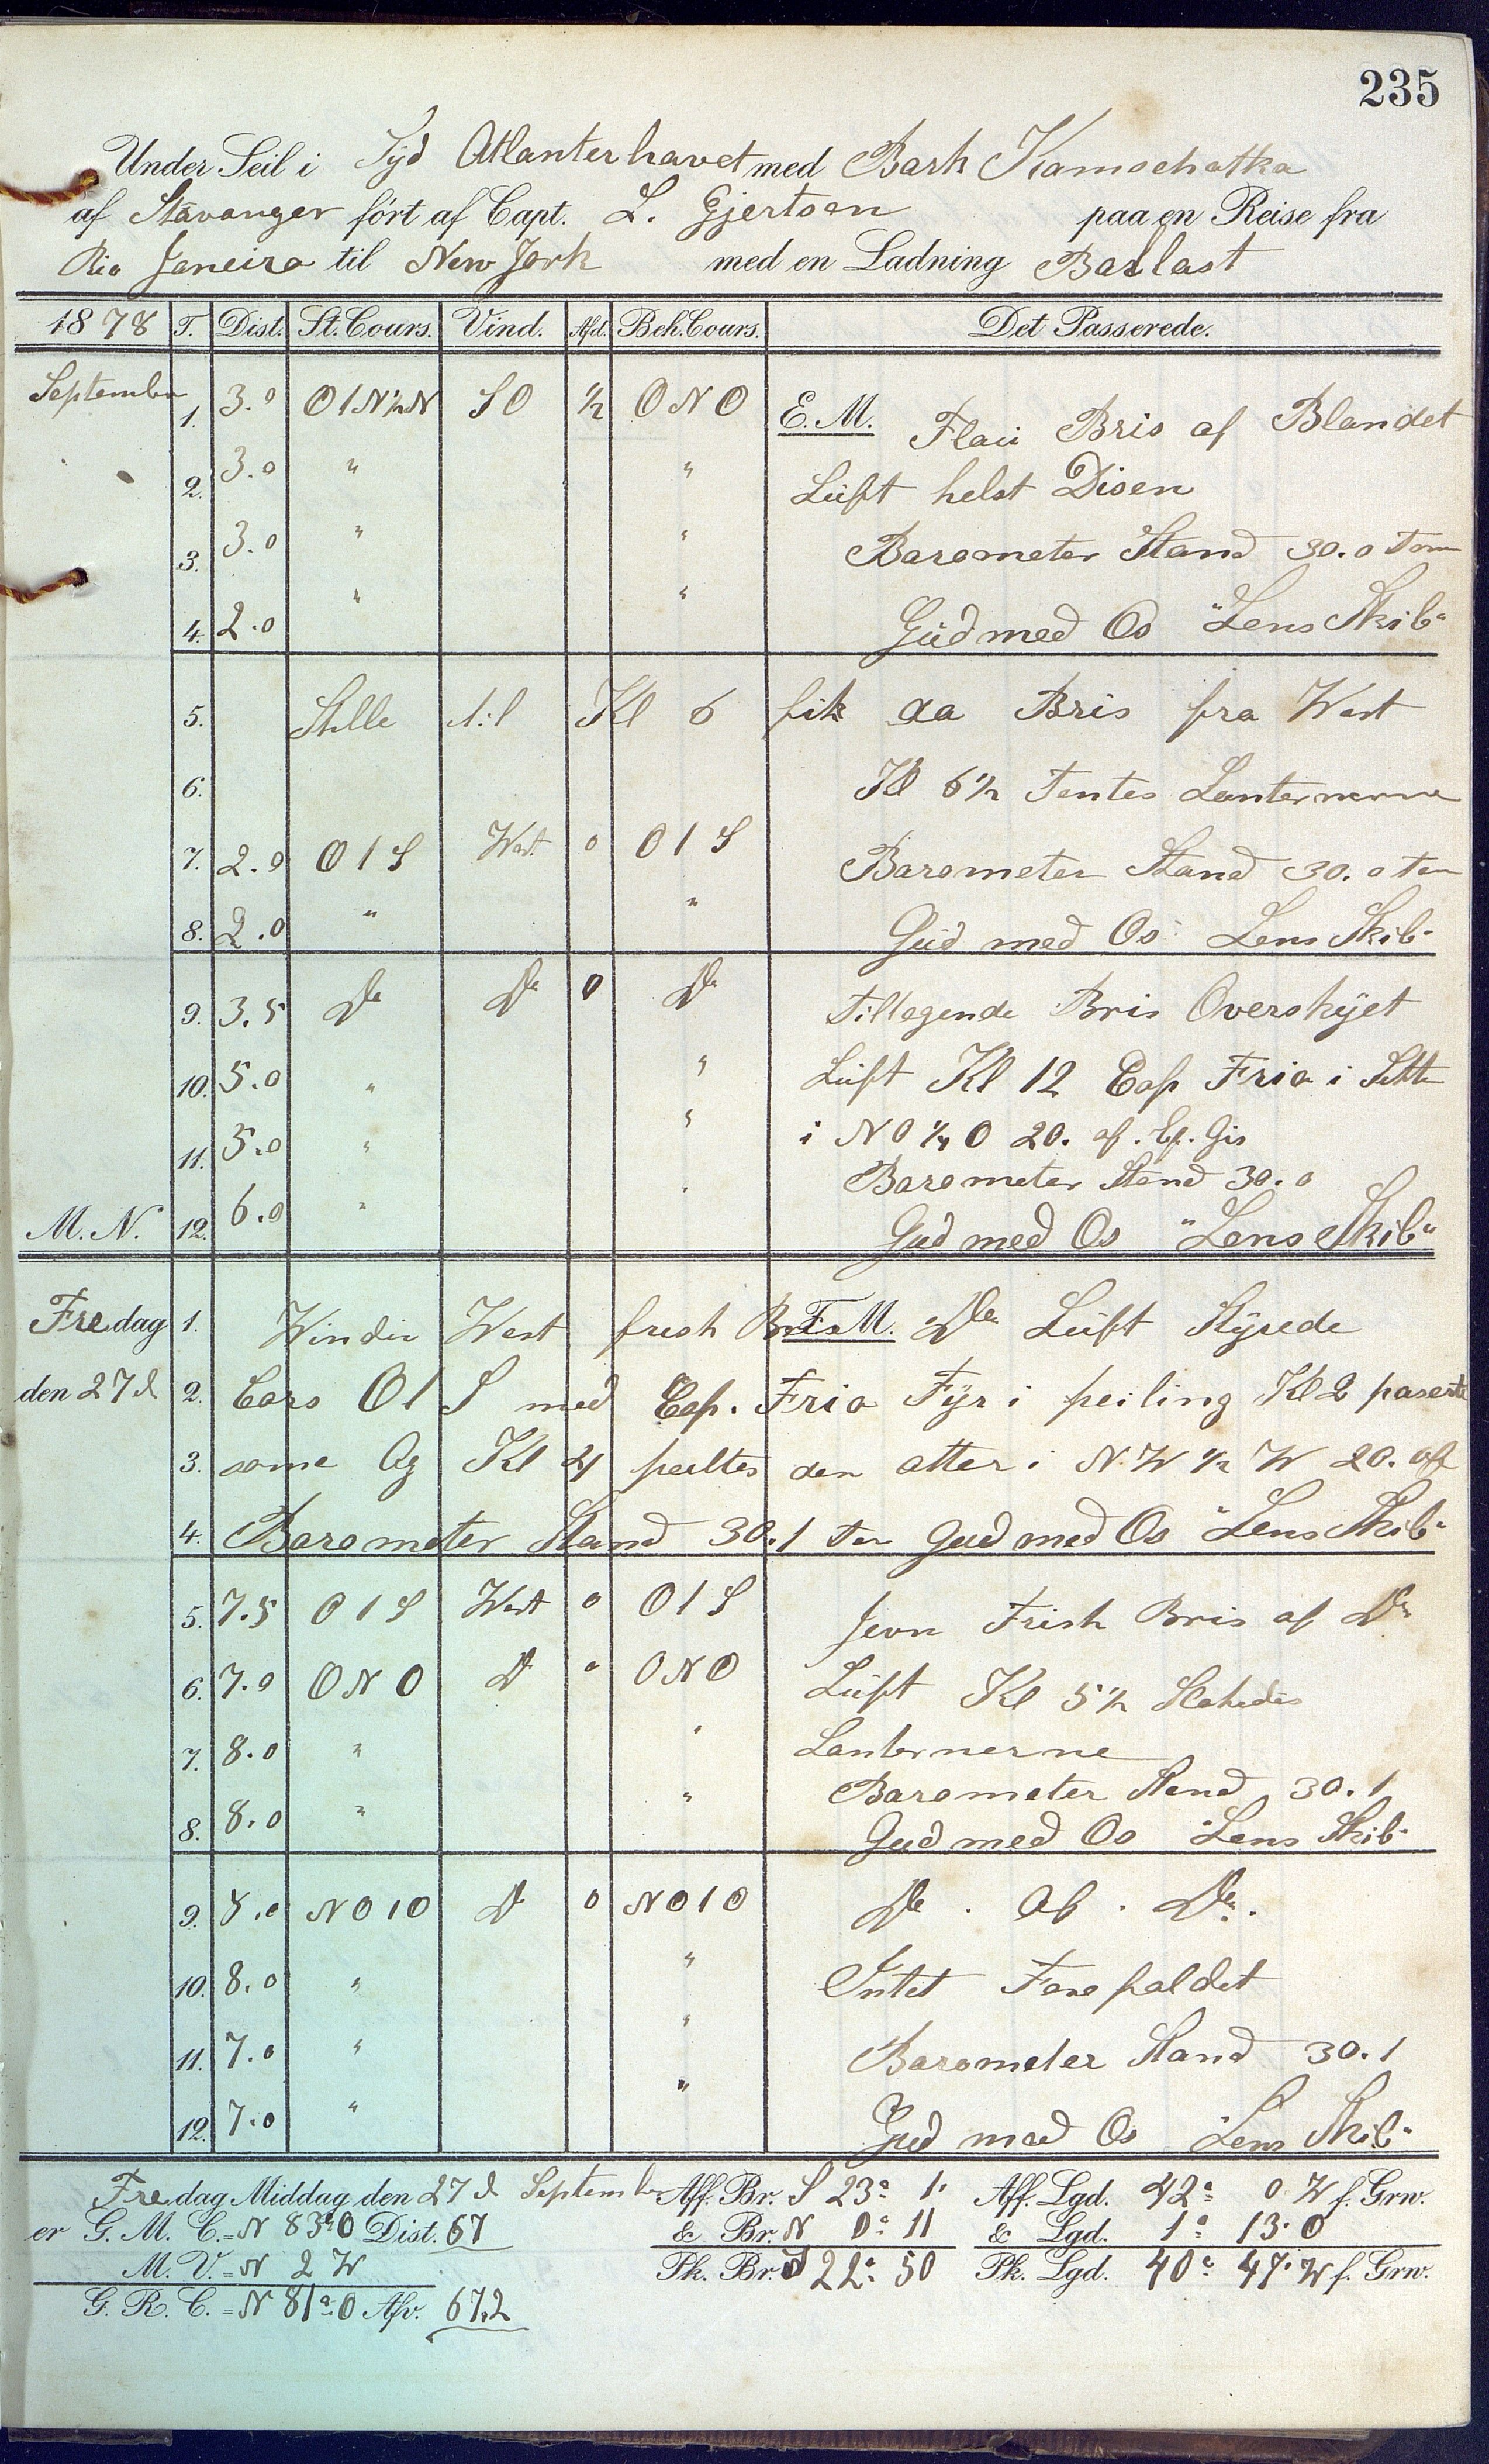 235
Under Seil i Syd Atlanterhavet med Bark Kamschatka
af Stavanger ført af Capt. L. Gjertsen paa en Reise fra
Rio Janeiro til New York med en Ladning Ballast
1878 T. Dist. St. Cours. Vind. Afd. Beh. Cours. Det Passerede.
September 1. 3.0 O1N½N SO ½ ONO E. M. Flau Bris af Blandet
2. 3.0 " " Luft helst Disen
3. 3.0 " " Barometer Stand 30.0 Tom
4. 2.0 " " Gud med Os "Lens Skib"
5. Stille til Kl 6 fik da Bris fra West
6. Kl 6½ Tentes Lanternerne
7. 2.0 O1S West 0 O1S Barometer Stand 30.0 Tom
8. 2.0 " " Gud med Os Lens Skib"
9. 3.5 Do Do 0 Do Tiltagende Bris Overskyet
10. 5.0 " " Luft Kl 12 Cap Frio i Sitte
11. 5.0 " " i NO¼O 20. af. Ef. Gis
Barometer Stand 30.0
M. N. 12. 6.0 " " Gud med Os "Lens Skib"
Fredag 1. Winden West fresk Bris F. M. Do Luft Styrede
den 27d 2. Cors O1S med Cap. Frio Fyr i peiling Kl 2 paserte
3. same Og Kl 4 peiltes den atter i NW½W 20. af
4. Barometer Stand 30.1 Tom Gud med Os "Lens Skib"
5. 7.5 O1S West 0 O1S Jevn Frisk Bris af Do
6. 7.0 ONO Do " ONO Luft Kl 5½ Slukedes
7. 8.0 " " Lanternerne
Barometer Stand 30.1
8. 8.0 " " Gud med Os "Lens Skib"
9. 8.0 NO1O Do 0 NO1O Do. Af. Do.
10. 8.0 " " Intet Forefaldet
11. 7.0 " " Barometer Stand 30.1
12. 7.0 " " Gud med Os "Lens Skib"
Fredag Middag den 27d September Aff. Br. S 23° 1' Aff. Lgd. 42° 0 W f. Grw.
er G. M. C. = N 83°0 Dist. 67 & Br. N 0° 11 & Lgd. 1° 13.0
M. V. = N 2 W Pk. Br. S 22° 50 Pk. Lgd. 40° 47' W f. Grw.
G. R. C. = N 81°0 Afv. 67,2